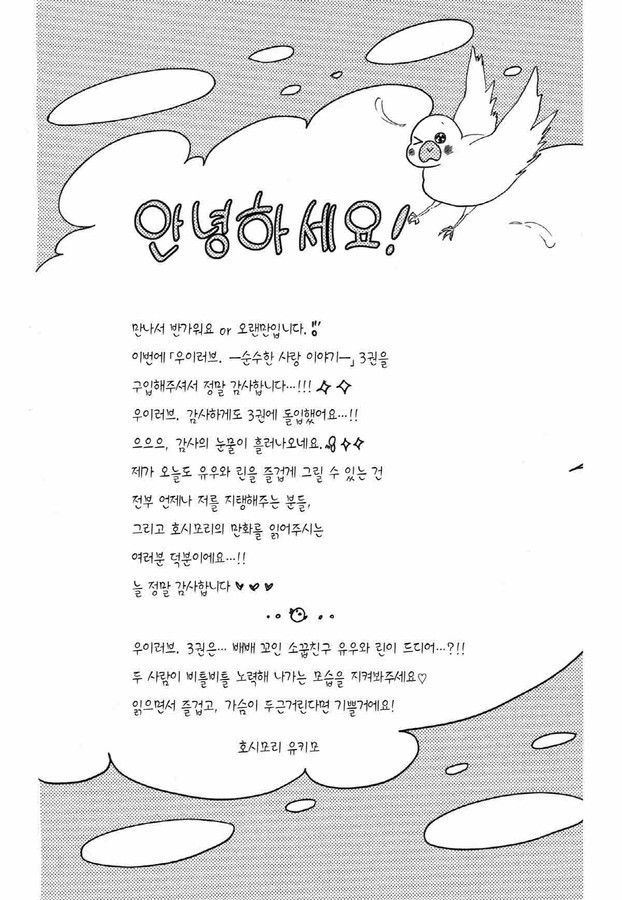 안녕하세요!
만나서 반가워요 or 오랜만입니다.
이번에 「우이러브. ―순수한 사랑 이야기―」 3권을
구입해주셔서 정말 감사합니다…!!!
우이러브. 감사하게도 3권에 돌입했어요…!!
으으으, 감사의 눈물이 흘러나오네요.
제가 오늘도 유우와 린을 즐겁게 그릴 수 있는 건
전부 언제나 저를 지탱해주는 분들,
그리고 호시모리의 만화를 읽어주시는
여러분 덕분이에요…!!
늘 정말 감사합니다♥♥♥
우이러브. 3권은… 배배 꼬인 소꿉친구 유우와 린이 드디어…?!!
두 사람이 비틀비틀 노력해 나가는 모습을 지켜봐주세요♡
읽으면서 즐겁고, 가슴이 두근거린다면 기쁠거에요!
호시모리 유키모